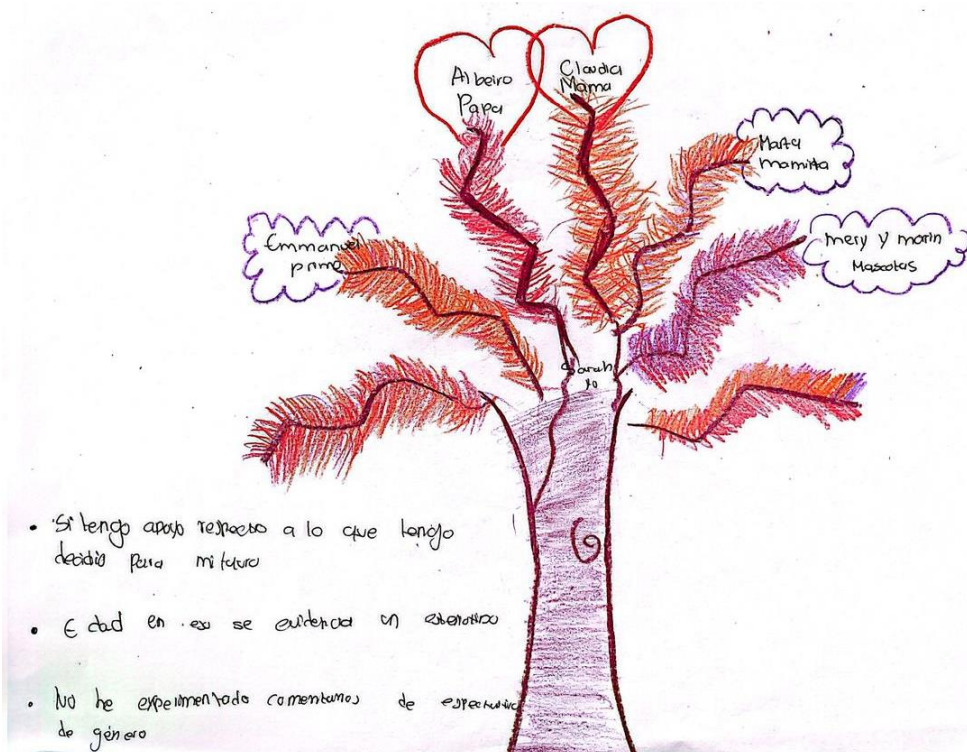 Albeiro
Papa
Claudia
Mama
Marta
mamita
Emmanuel
primo
mery y morin
Mascotas
Sarah
yo
• Si tengo apoyo respecto a lo que tengo
decidio para mi futuro
• Edad en eso se evidencia un estereotipo
• No he experimentado comentarios de
de género